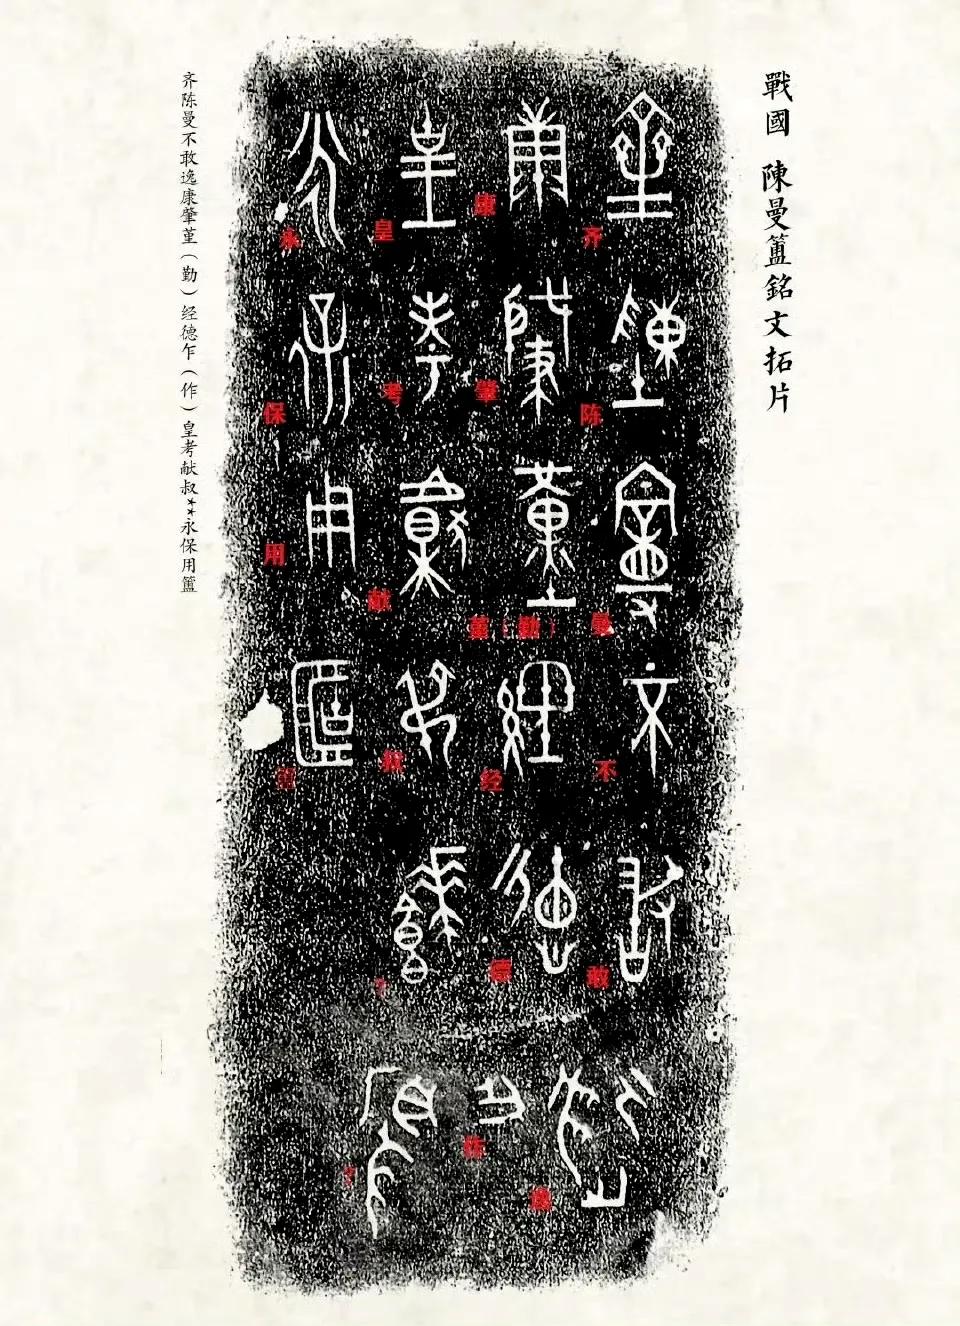 戰國 陳曼簠銘文拓片
齐陈曼不敢逸
康肇堇（勤）经德乍
皇考献叔？？
永保用簠
齐陈曼不敢逸康肇堇（勤）经德乍（作）皇考献叔**永保用簠